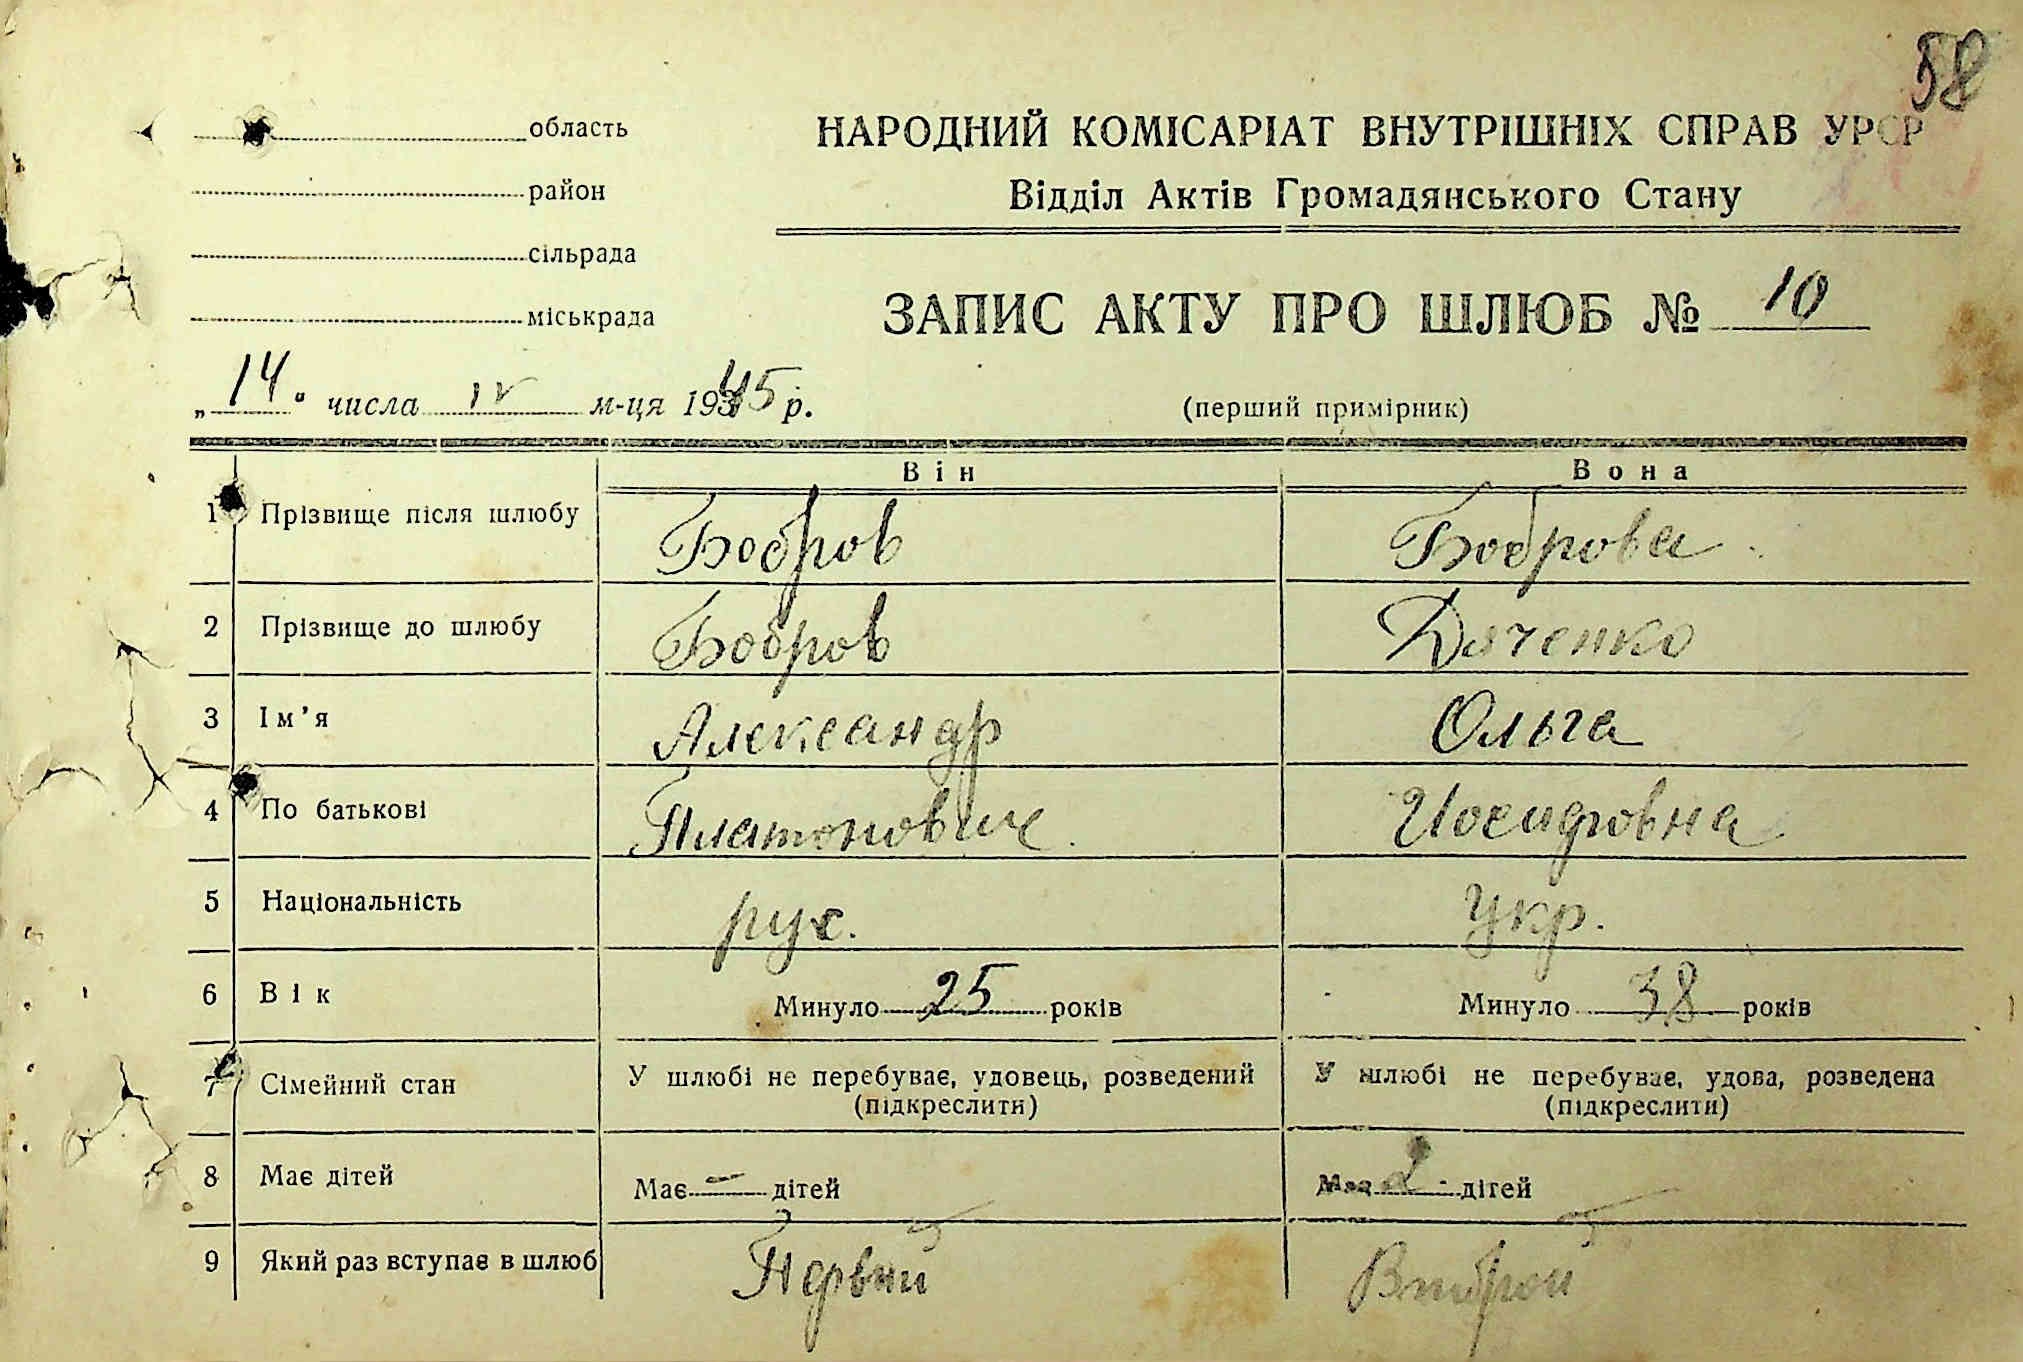 58
область
район
сільрада
міськрада
НАРОДНИЙ КОМІСАРІАТ ВНУТРІШНІХ СПРАВ УРСР
Відділ Актів Громадянського Стану
ЗАПИС АКТУ ПРО ШЛЮБ № 10
„14“ числа IV м-ця 1945 р.
(перший примірник)
Він Вона
1 Прізвище після шлюбу Бобров Боброва
2 Прізвище до шлюбу Бобров Дяченко
3 Ім’я Александр Ольга
4 По батькові Платонович Иосифовна
5 Національність рус. Укр.
6 Вік Минуло 25 років Минуло 38 років
7 Сімейний стан У шлюбі не перебуває, удовець, розведений (підкреслити) У шлюбі не перебуває, удова, розведена (підкреслити)
8 Має дітей Має – дітей Має 2 дітей
9 Який раз вступає в шлюб Первий Второй